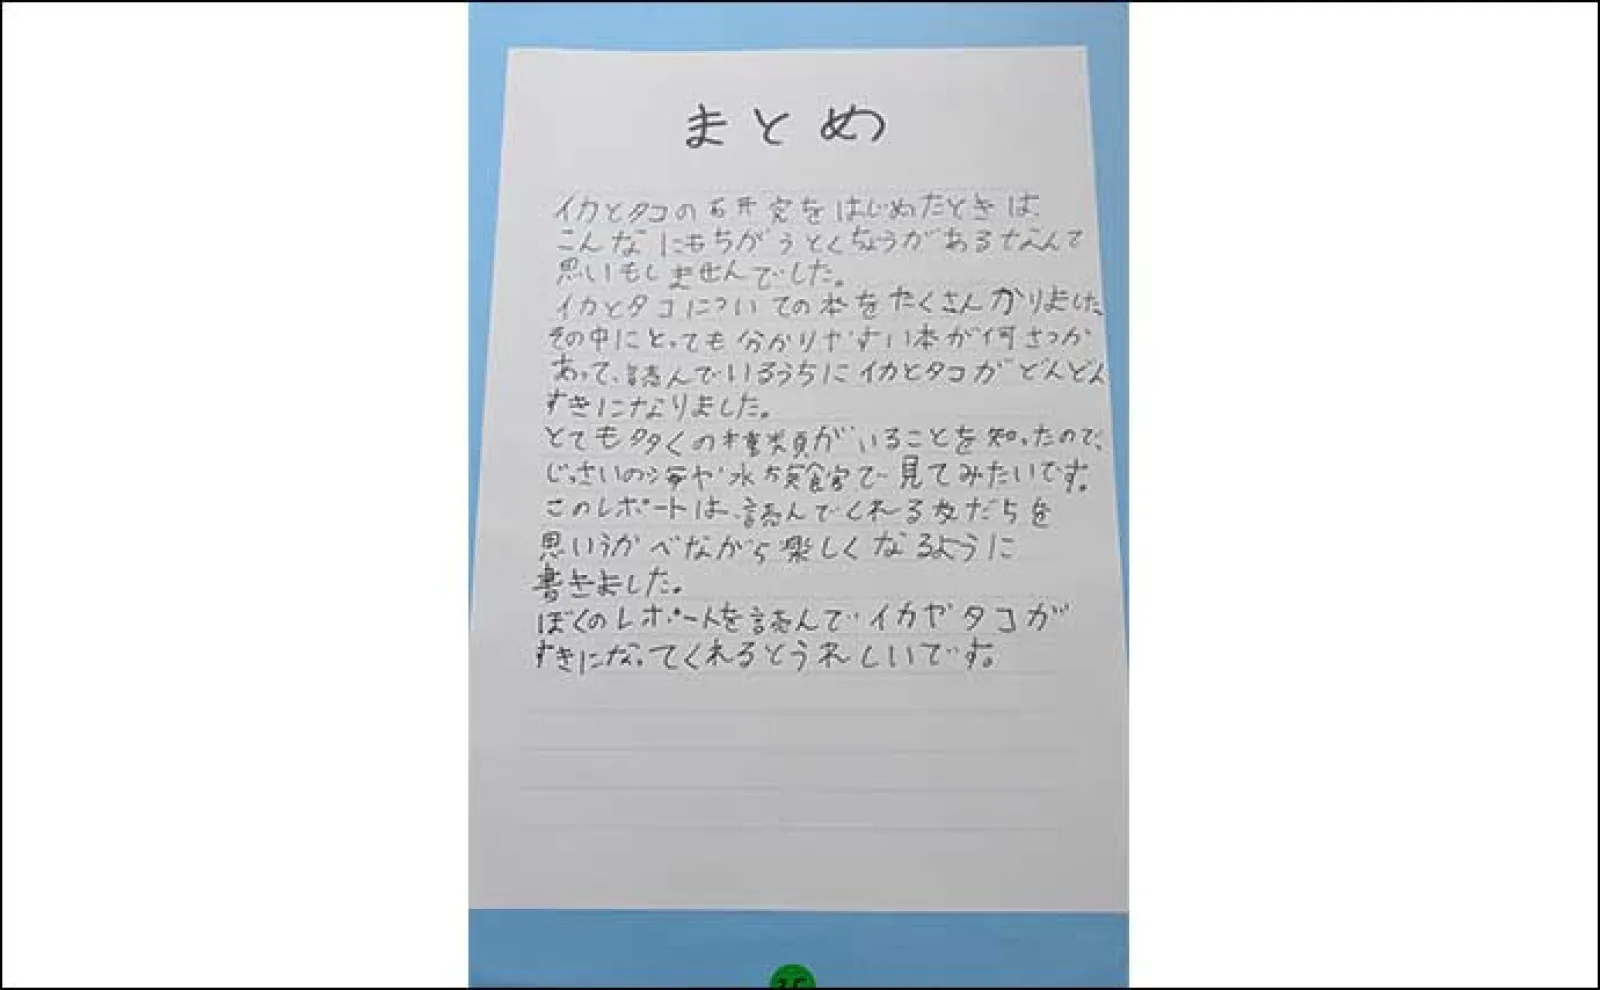 まとめ
イカとタコの研究をはじめたときは、
こんなにもちがうとくちょうがあるなんて
思いもしませんでした。
イカとタコについての本をたくさんかりました。
その中にとっても分かりやすい本が何さつか
あって、読んでいるうちにイカとタコがどんどん
すきになりました。
とても多くの種類がいることを知ったので、
じっさいの海や水族館で見てみたいです。
このレポートは、読んでくれる友だちを
思いうかべながら楽しくなるように
書きました。
ぼくのレポートを読んでイカやタコが
すきになってくれるとうれしいです。